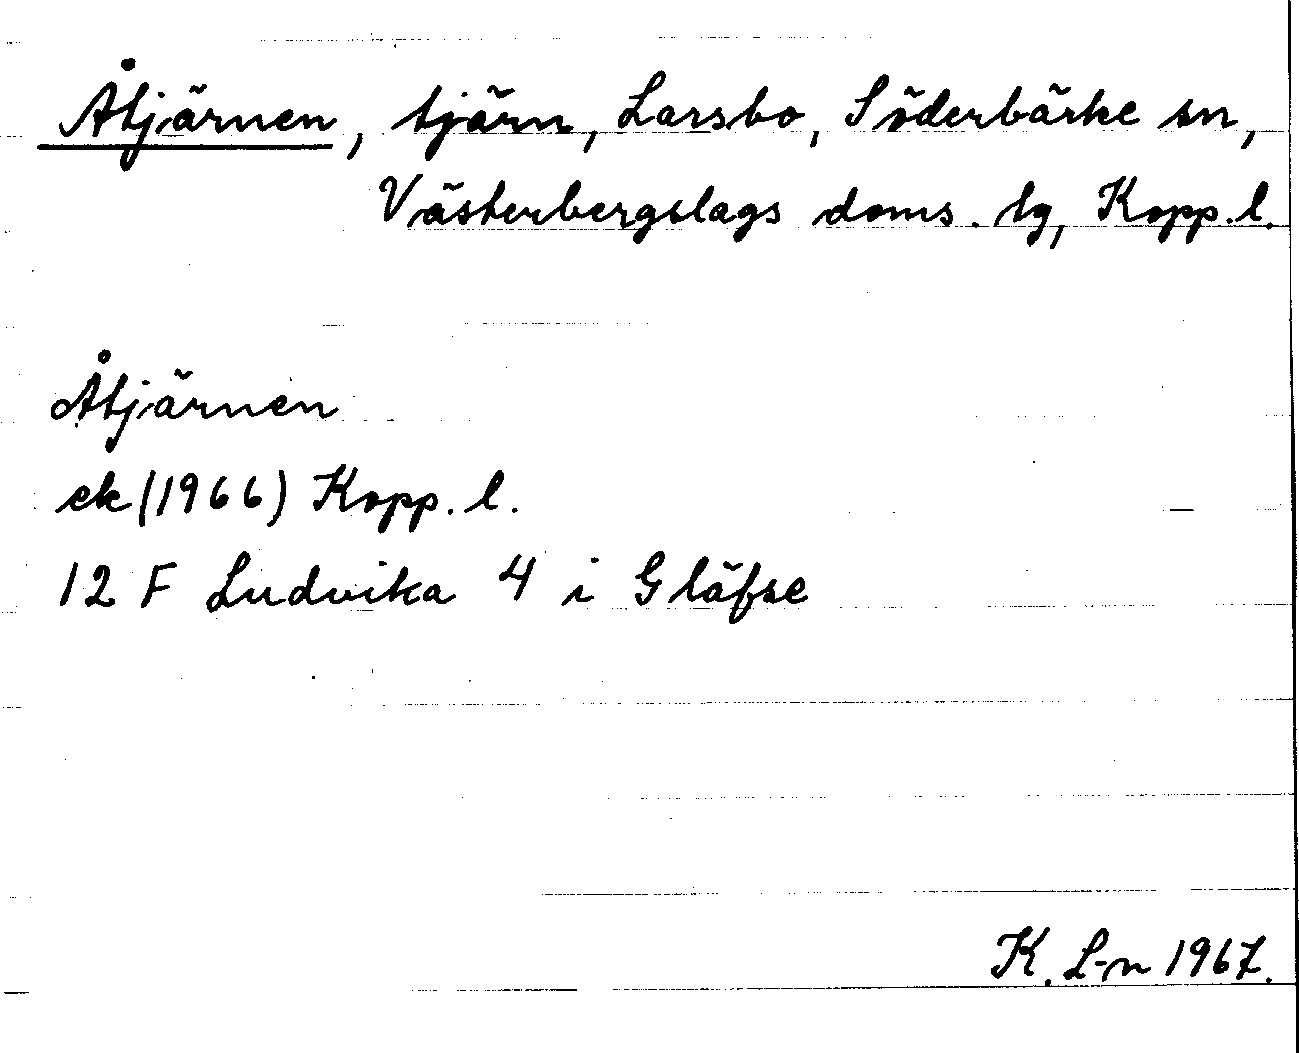 Åtjärnen, tjärn, Larsbo, Söderbärke sn,
Västerbergslags doms. lg, Kopp. l.
Åtjärnen
ek (1966) Kopp. l.
12 F Ludvika 4 i Gläfse
K. L-n 1967.